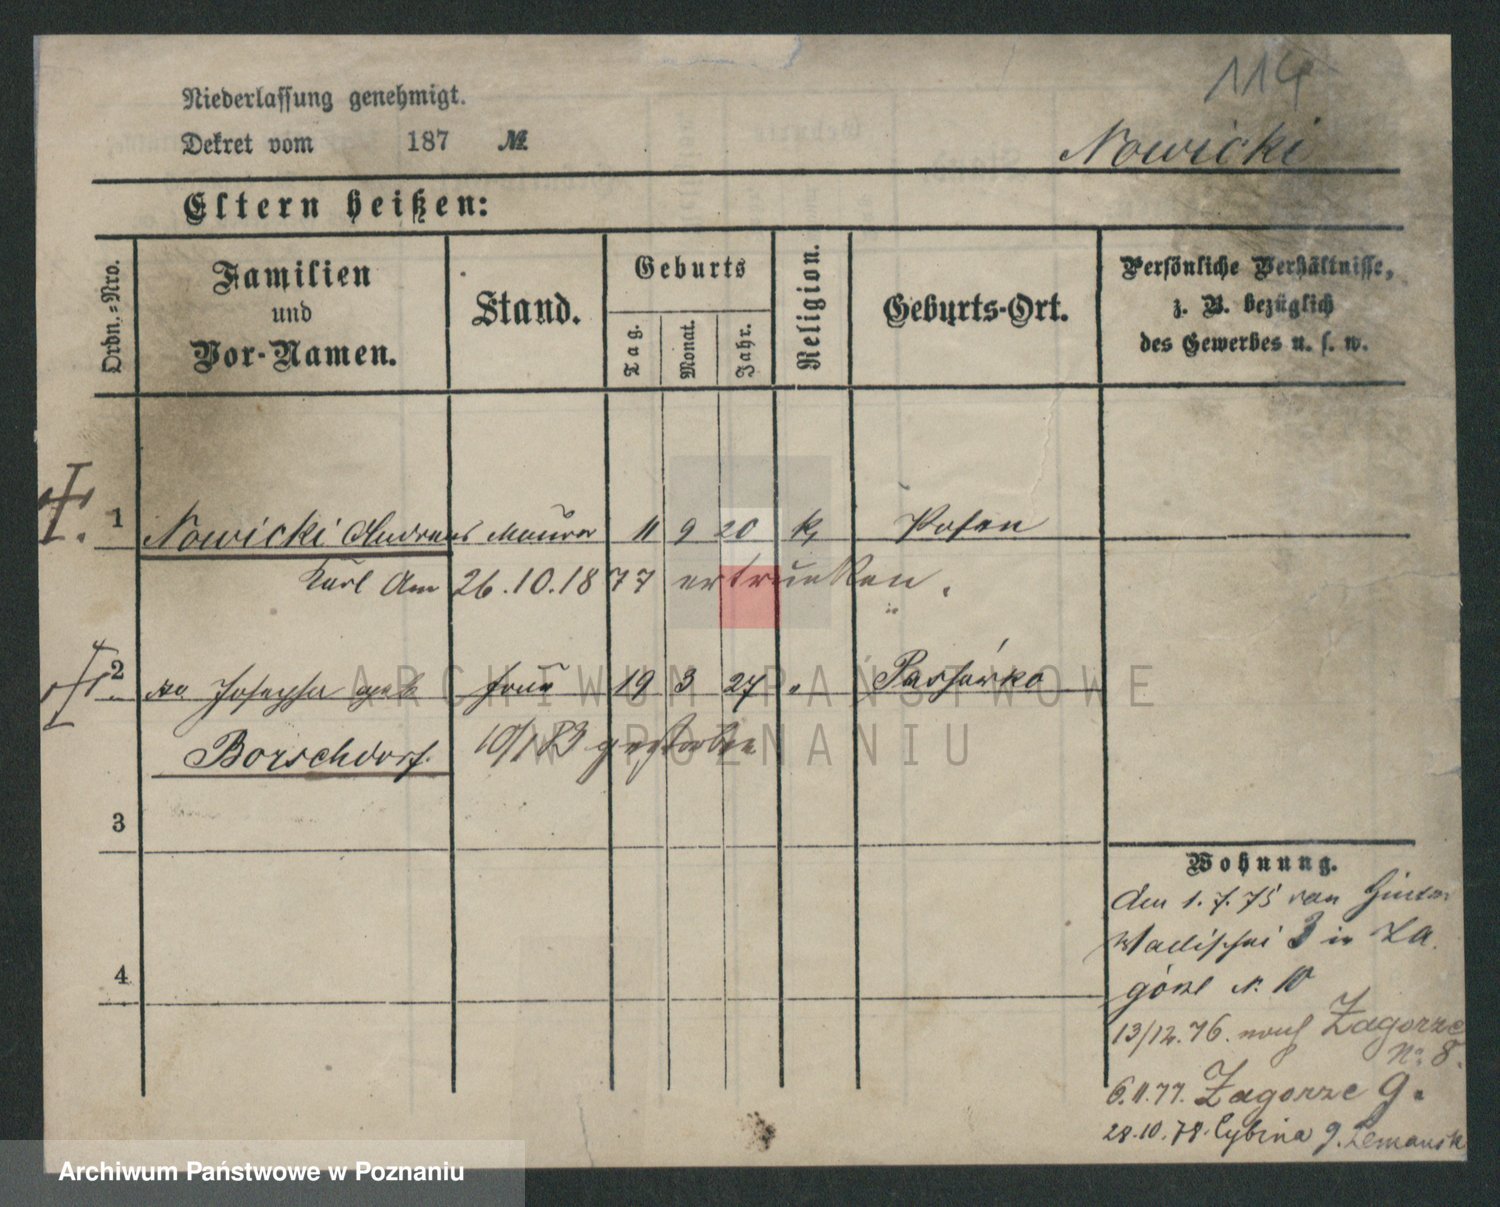 114
Niederlassung genehmigt.
Dekret vom 187 №
Nowicki
Eltern heißen:
Ordn.-Nro.
Familien
und
Vor-Namen.
Stand.
Geburts
Tag.
Monat.
Jahr.
Religion.
Geburts-Ort.
Persönliche Verhältnisse,
z. B. bezüglich
des Gewerbes u. s. w.
1 Nowicki Andreas Maurer 11 9 20 k. Posen
Karl Am 26.10.1877 ertrunken.
2 Josepha geb. Frau 19 3 27 "
Borschdorf. 10/1 83 gestorben
3
4
Wohnung.
Am 1.7.75 von Hinter
Wallischei 3 in Za
górze N. 10
13/12.76. nach Zagorze
No. 8.
6.11.77. Zagorze 9.
28.10.78. Cybina 9.
ARCHIWUM PAŃSTWOWE
W POZNANIU
Archiwum Państwowe w Poznaniu